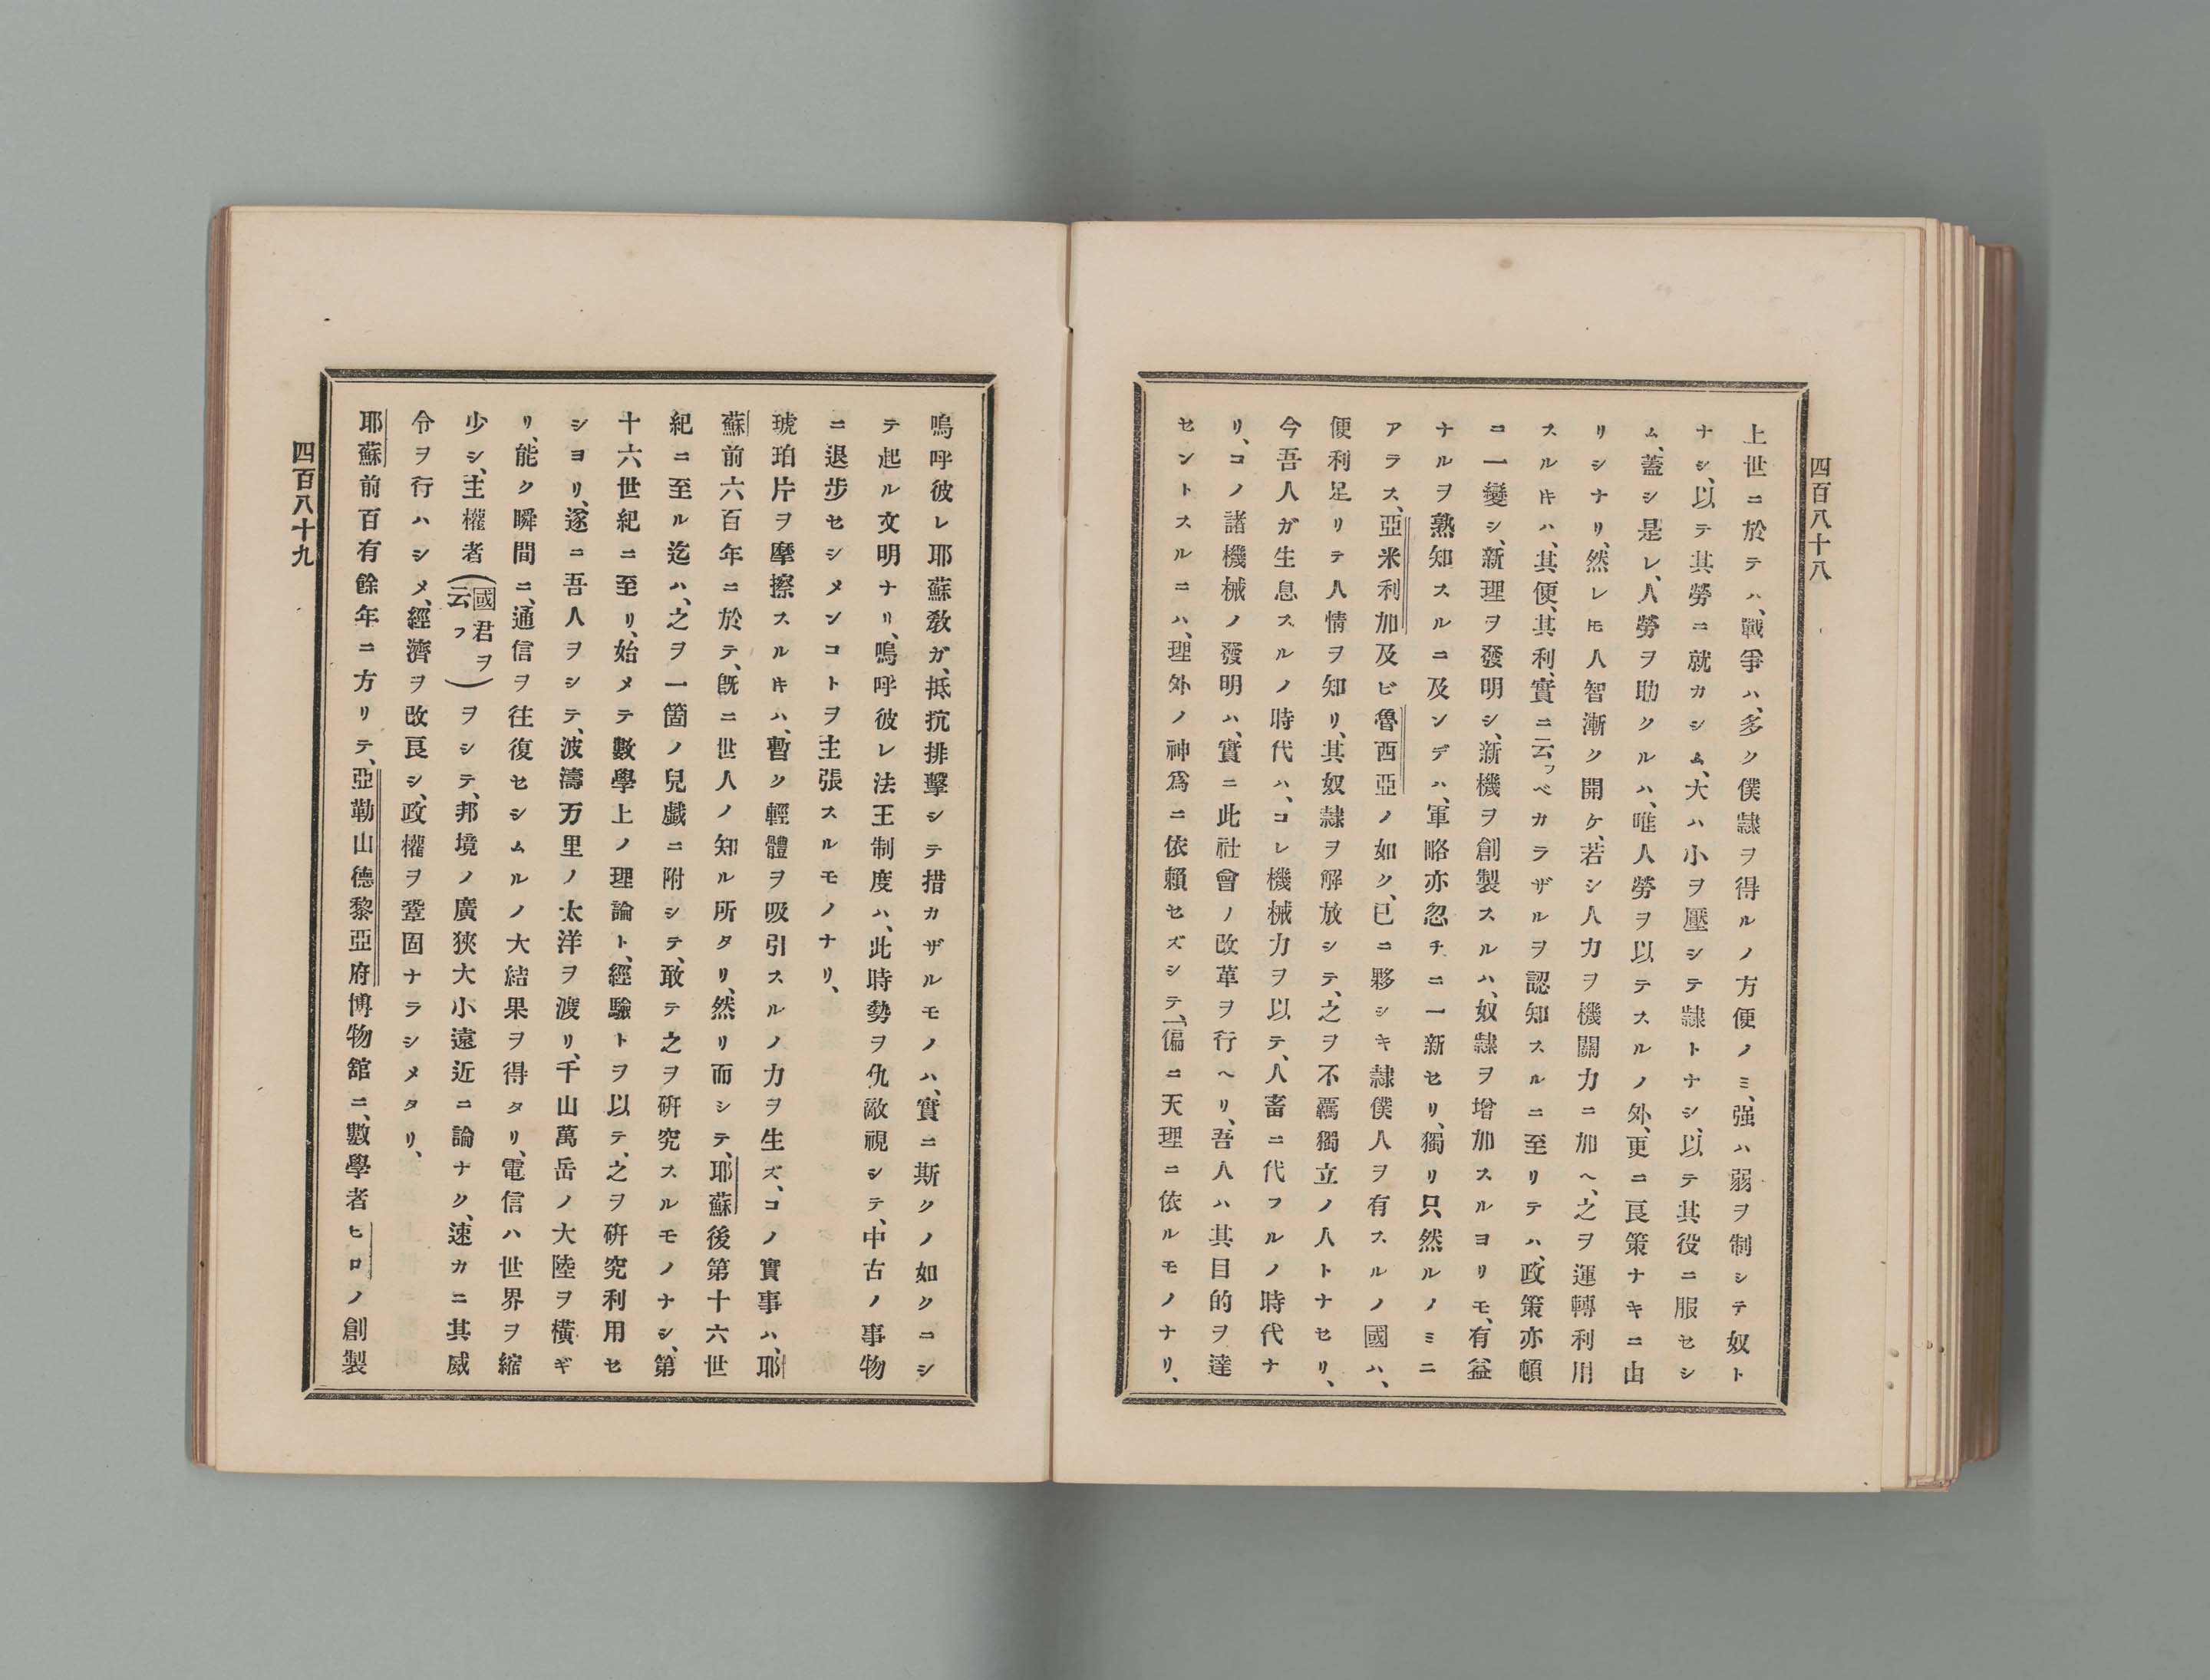 四百八十八
上世ニ於テハ、戰爭ハ、多ク僕隷ヲ得ルノ方便ノミ、强ハ弱ヲ制シテ奴ト
ナシ、以テ其勞ニ就カシム、大ハ小ヲ壓シテ隷トナシ、以テ其役ニ服セシ
ム、蓋シ是レ、人勞ヲ助クルハ、唯人勞ヲ以テスルノ外、更ニ良策ナキニ由
リシナリ、然レ𪜈人智漸ク開ケ、若シ人力ヲ機關力ニ加ヘ、之ヲ運轉利用
スルキハ、其便、其利、實ニ云フベカラザルヲ認知スルニ至リテハ、政策亦頓
ニ一變シ、新理ヲ發明シ、新機ヲ創製スルハ、奴隷ヲ增加スルヨリモ、有益
ナルヲ熟知スルニ及ンデハ、軍略亦忽チニ一新セリ、獨リ只然ルノミニ
アラス、亞米利加及ビ魯西亞ノ如ク、已ニ夥シキ隷僕人ヲ有スルノ國ハ、
便利足リテ人情ヲ知リ、其奴隷ヲ解放シテ、之ヲ不羈獨立ノ人トナセリ、
今吾人ガ生息スルノ時代ハ、コレ機械力ヲ以テ、人畜ニ代フルノ時代ナ
リ、コノ諸機械ノ發明ハ、實ニ此社會ノ改革ヲ行ヘリ、吾人ハ其目的ヲ達
セントスルニハ、理外ノ神爲ニ依賴セズシテ、偏ニ天理ニ依ルモノナリ、
嗚呼彼レ耶蘇敎ガ、抵抗排擊シテ措カザルモノハ、實ニ斯クノ如クニシ
テ起ル文明ナリ、嗚呼彼レ法王制度ハ、此時勢ヲ仇敵視シテ、中古ノ事物
ニ退步セシメンコトヲ主張スルモノナリ、
琥珀片ヲ摩擦スルキハ、暫ク輕體ヲ吸引スルノ力ヲ生ズ、コノ實事ハ、耶
蘇前六百年ニ於テ、旣ニ世人ノ知ル所タリ、然リ而シテ、耶蘇後第十六世
紀ニ至ル迄ハ、之ヲ一箇ノ兒戲ニ附シテ、敢テ之ヲ硏究スルモノナシ、第
十六世紀ニ至リ、始メテ數學上ノ理論ト、經驗トヲ以テ、之ヲ硏究利用セ
シヨリ、遂ニ吾人ヲシテ、波濤万里ノ太洋ヲ渡リ、千山萬岳ノ大陸ヲ橫ギ
リ、能ク瞬間ニ、通信ヲ往復セシムルノ大結果ヲ得タリ、電信ハ世界ヲ縮
少シ、主權者(國君ヲ云フ)ヲシテ、邦境ノ廣狹大小遠近ニ論ナク、速カニ其威
令ヲ行ハシメ、經濟ヲ改良シ、政權ヲ鞏固ナラシメタリ、
耶蘇前百有餘年ニ方リテ、亞勒山德黎亞府博物舘ニ、數學者ヒロノ創製
四百八十九